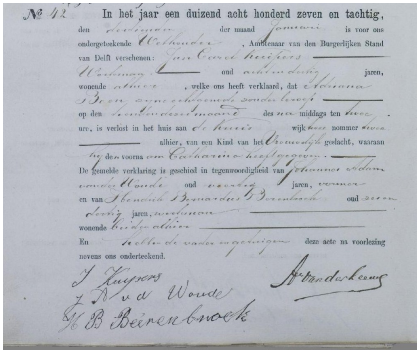 № 42 In het jaar een duizend acht honderd zeven en tachtig,
den der maand Januari is voor ons
ondergeteekende Wethouder, Ambtenaar van den Burgerlijken Stand
van Delft verschenen: Jan Kuijpers
Werkman oud achtendertig jaren,
wonende alhier, welke ons heeft verklaard, dat Adriana
zijne echtgenoote zonder beroep
op den dezer maand des na middags ten twee
ure, is verlost in het huis aan de wijk nommer twee
alhier, van een Kind van het Vrouwelijk geslacht, waaraan
hij den voornaam Catharina heeft gegeven.
De gemelde verklaring is geschied in tegenwoordigheid van Johannes Adam
van der Woude oud veertig jaren, 
en van Hendrik Bernardus Beirenbroek oud zeven
dertig jaren, werkman
wonende beiden alhier
En hebben de vader en getuigen deze acte na voorlezing
nevens ons onderteekend.
J Kuypers
J A v d Woude
H B Beirenbroek
A van der Leeuw